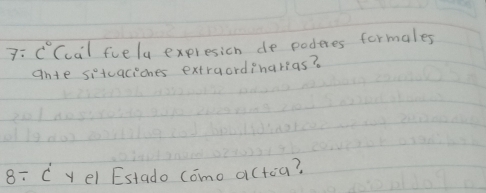 7: ¿Cuál fue la expresión de poderes formales
ante situaciones extraordinarias?
8: ¿ y el Estado cómo actúa?